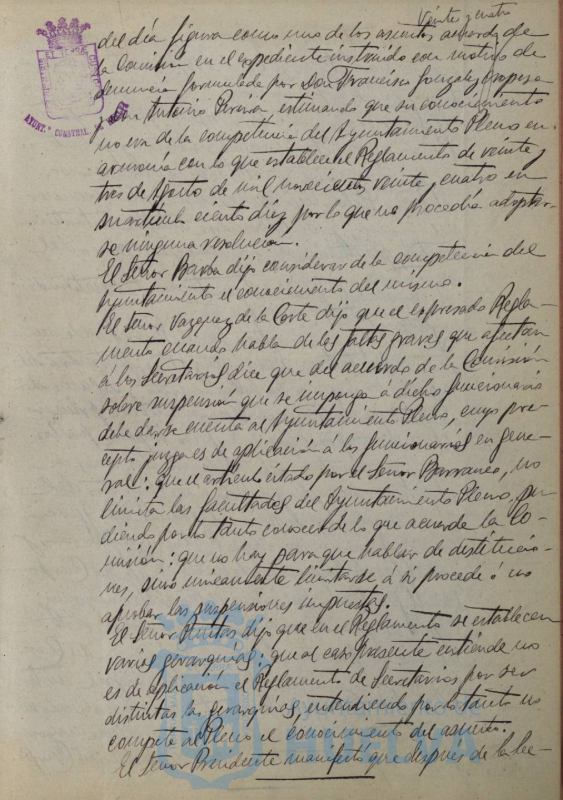 Veinte y cuatro
del día figura como uno de los asuntos acuerdo de
la Comisión en el expediente instruido con motivo de
denuncia formulada por Don Francisco González Oropesa
a Don Antonio estimando que su conocimiento
no era de la competencia del Ayuntamiento Pleno en
armonía con lo que establece el Reglamento de veinte
tres de Agosto de mil novecientos veinte y cuatro en
su artículo ciento diez por lo que no procedía adoptar-
se ninguna resolución.
El Señor Barba dijo considerar de la competencia del
Ayuntamiento el conocimiento del mismo.
El Señor Vazquez de la Corte dijo que el expresado Regla-
mento cuando habla de las faltas graves que afectan
á los Secretarios, dice que del acuerdo de la Comisión
sobre suspensión que se imponga á dicho funcionario
debe darse cuenta al Ayuntamiento Pleno, cuyo pre-
cepto juzga es de aplicación á los funcionarios en gene-
ral: que el artículo citado por el Señor Barranco, no
limita las facultades del Ayuntamiento Pleno, pu-
diendo por lo tanto conocer de lo que acuerde la Co-
misión; que no hay para que hablar de destitucio-
nes, sino unicamente limitarse á si procede ó no
aprobar las suspensiones impuestas.
El Señor dijo que en el Reglamento se establecen
varias gerarquias: que al caso presente entiende no
es de aplicación el Reglamento de Secretarios por ser
distintas las gerarquias, entendiendo por lo tanto no
compete al Pleno el conocimiento del asunto.
El Señor Presidente manifestó que después de la lec-